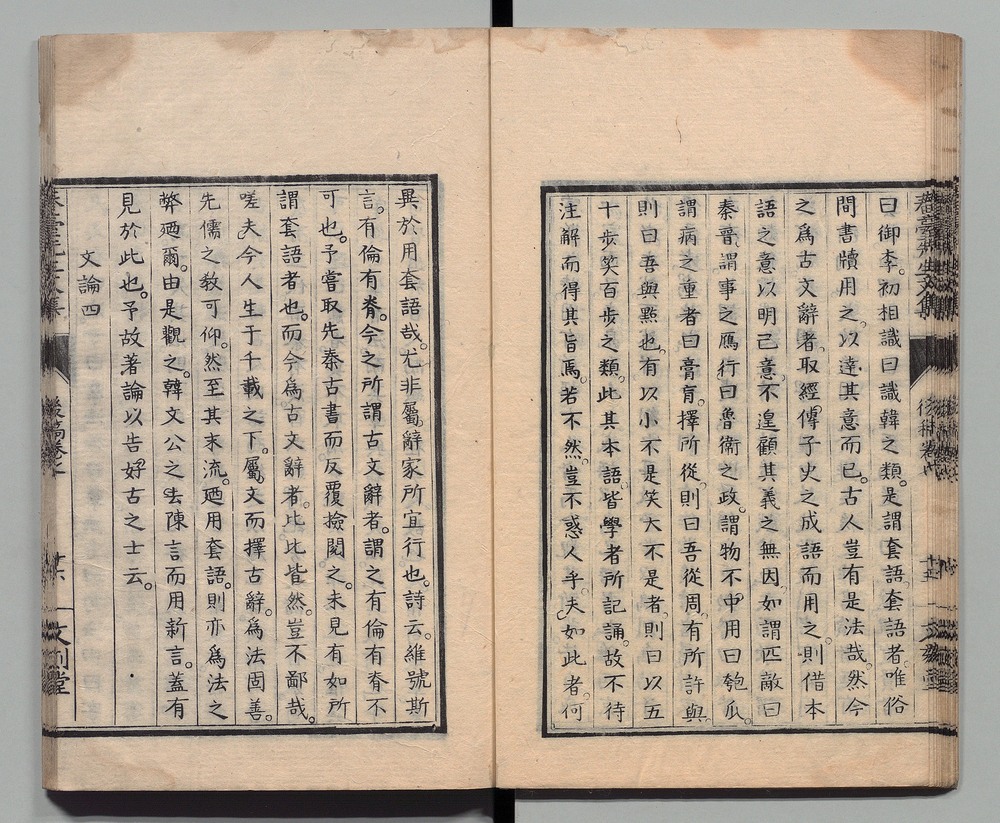 曰御李。初相識曰識韓之類。是謂套語。套語者。唯俗
間書牘用之。以達其意而已。古人豈有是法哉。然今
之為古文辭者。取經傳子史之成語而用之。則借本
語之意以明己意。不遑顧其義之無因。如謂匹敵曰
秦晉。謂事之鴈行曰魯衛之政。謂物不中用曰匏瓜。
謂病之重者曰膏肓。擇所從。則曰吾從周。有所許與。
則曰吾與點也。有以小不是笑大不是者。則曰以五
十步笑百步之類。此其本語。皆學者所記誦。故不待
注解而得其旨焉。若不然。豈不惑人乎。夫如此者。何
異於用套語哉。尤非屬辭家所宜行也。詩云。維號斯
言。有倫有脊。今之所謂古文辭者。謂之有倫有脊不
可也。予嘗取先秦古書而反覆撿閱之。未見有如所
謂套語者也。而今為古文辭者。比比皆然。豈不鄙哉。
嗟夫今人生于千載之下。屬文而擇古辭。為法固善。
先儒之教可仰。然至其末流。廼用套語。則亦為法之
弊廼爾。由是觀之。韓文公之去陳言而用新言。蓋有
見於此也。予故著論以告好古之士云。
文論四
後稿卷七